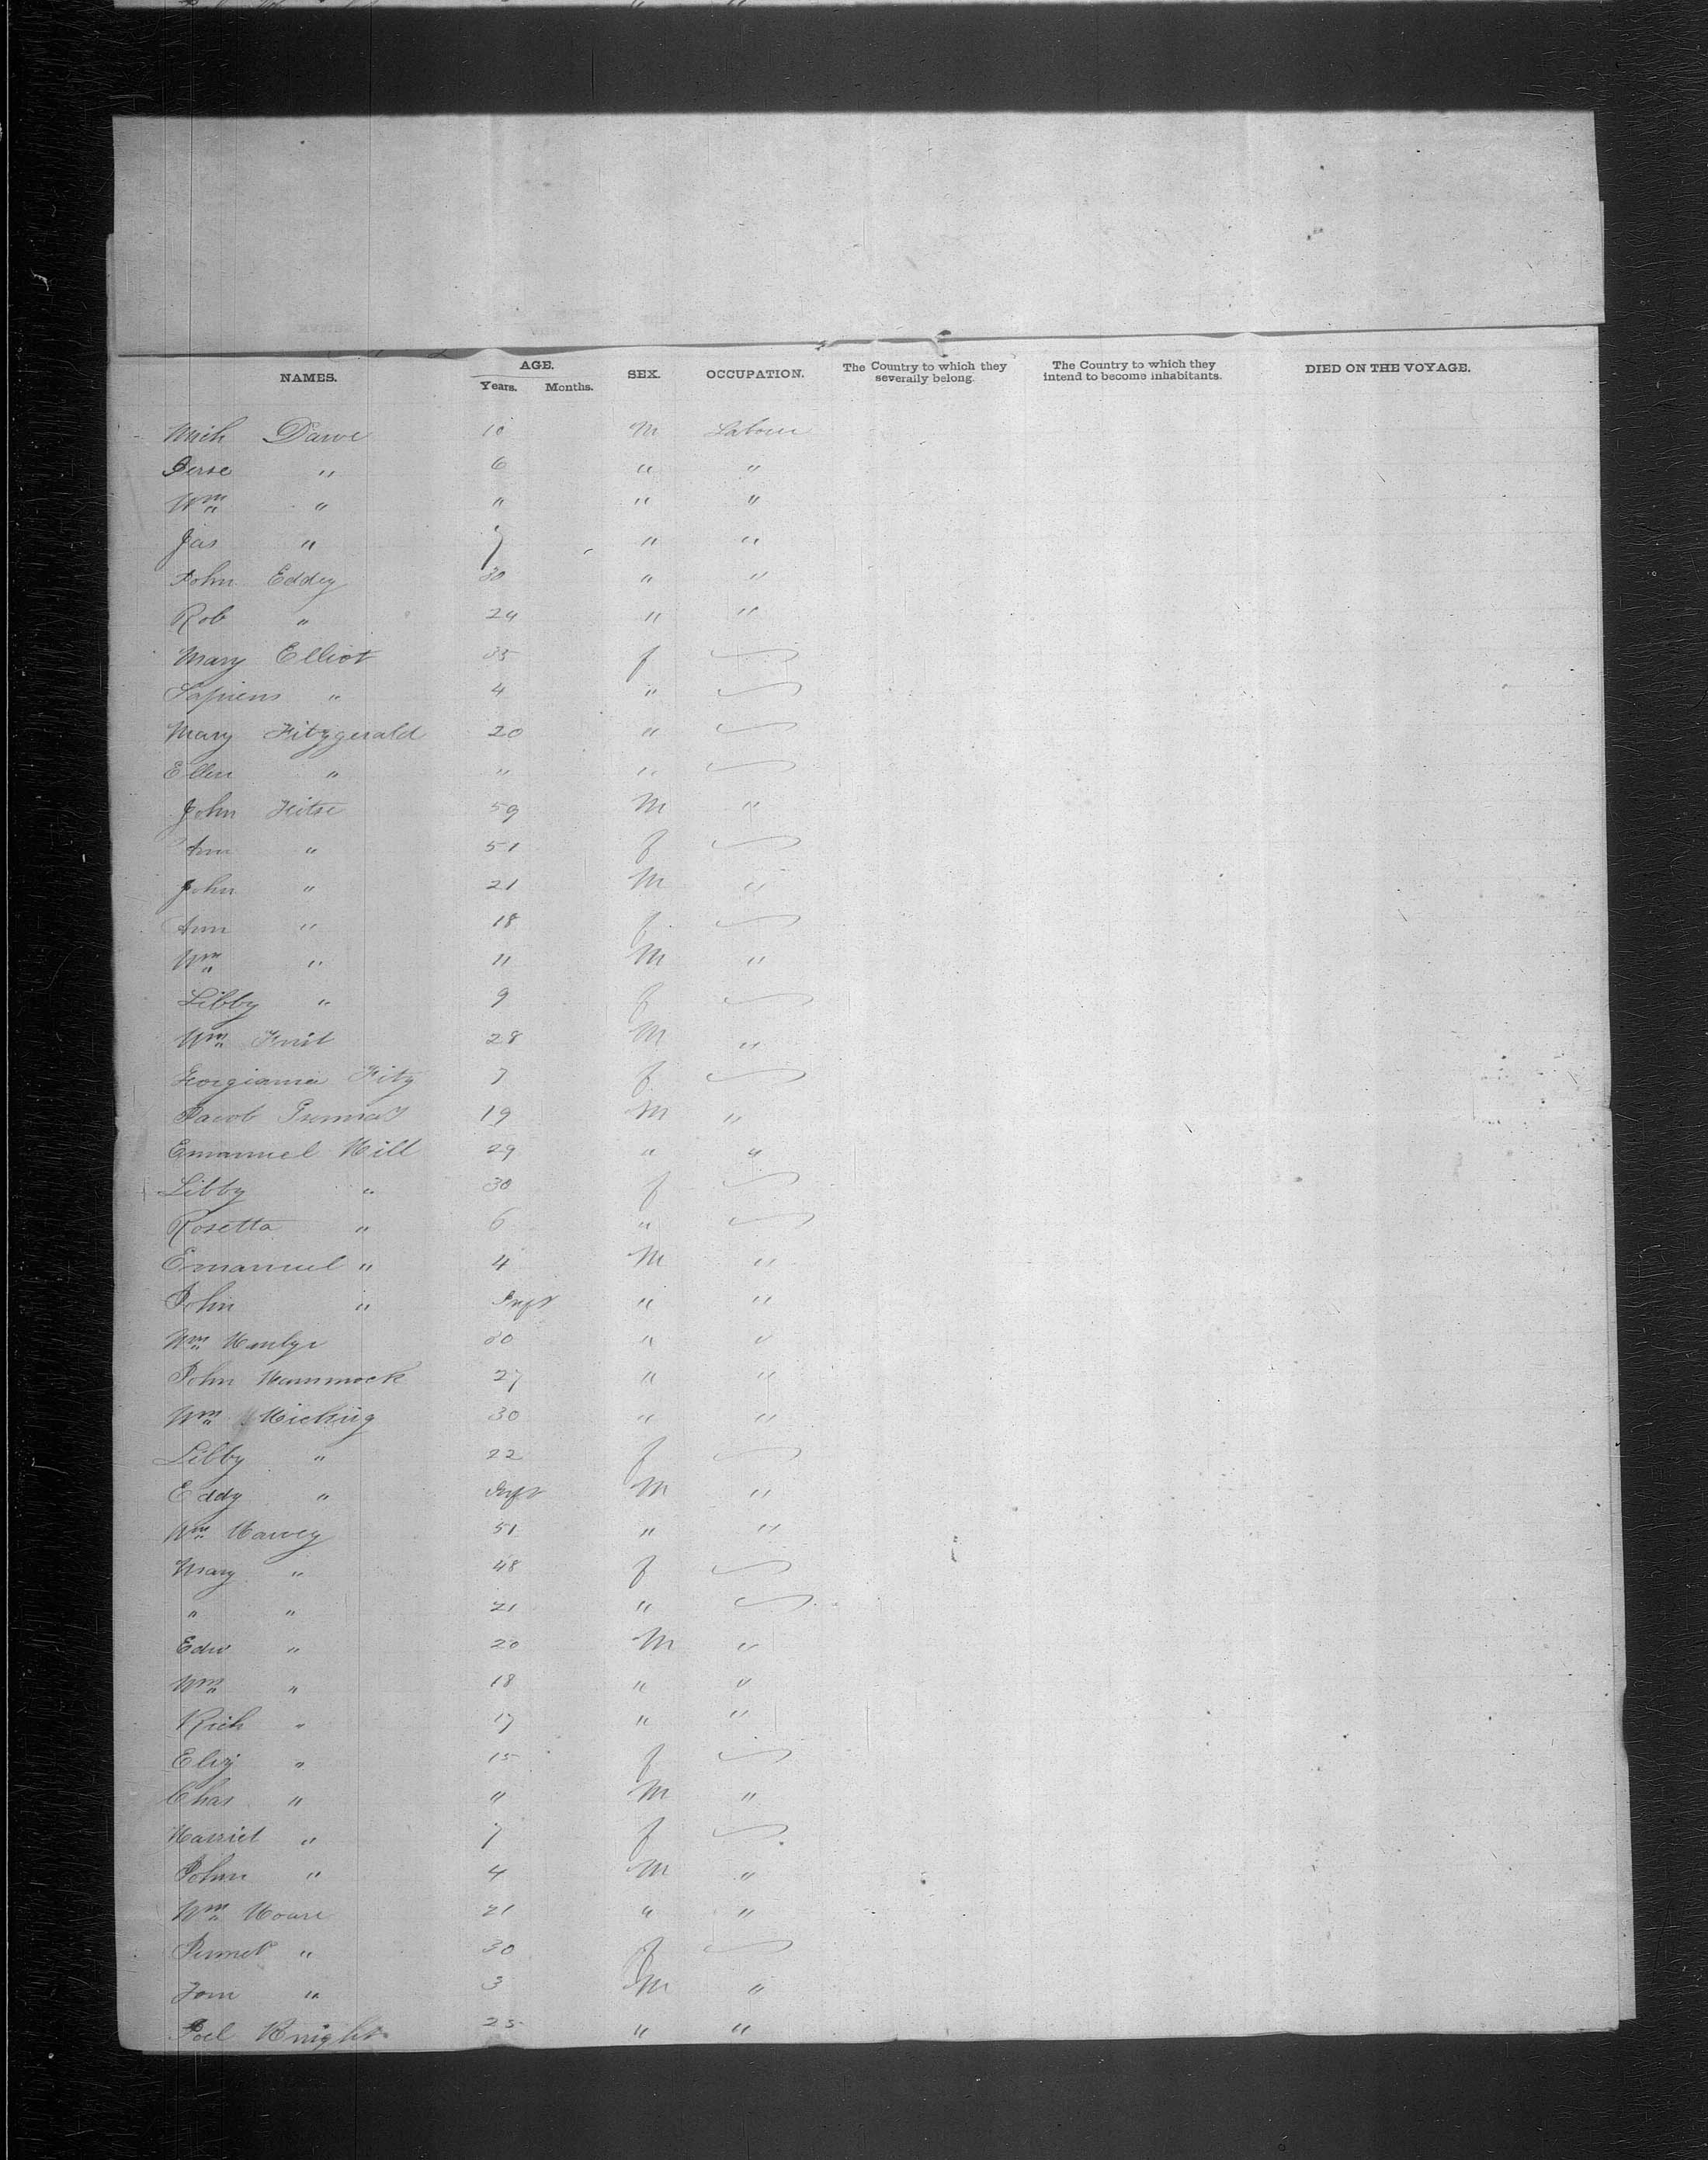 NAMES. AGE. Years. Months. SEX. OCCUPATION. The Country to which they severally belong. The Country to which they intend to become inhabitants. DIED ON THE VOYAGE.
Mich Dawe 10 M Labour
Jesse " 6 " "
Wm " " " "
Jas " 7 " "
John Eddey 30 " "
Rob " 24 " "
Mary Elliot 35 f
" 4 "
Mary Fitzgerald 20 "
Ellen " " "
John Fitse 59 M "
Ann " 51 f
John " 21 M "
Ann " 18 f
Wm " 11 M "
Libby " 9 f
Wm 28 M "
Georgiana Fitz 7 f
Jacob 19 M "
Emanuel Hill 29 " "
Libby " 30 f
Rosetta " 6 "
Emanuel " 4 M "
John " Inft " "
Wm 30 " "
John Hammock 27 " "
Wm 30 " "
Libby " 22 f
Eddy " Inft M "
Wm Harvey 51 " "
Mary " 48 f
" " 21 "
Edw " 20 M "
Wm " 18 " "
Rich " 17 " "
Eliz " 15 f
Chas " " M "
Harriet " 7 f
John " 4 M "
Wm Hoare 21 " "
" 30 f
Tom " 3 M "
Joel Knight 25 " "